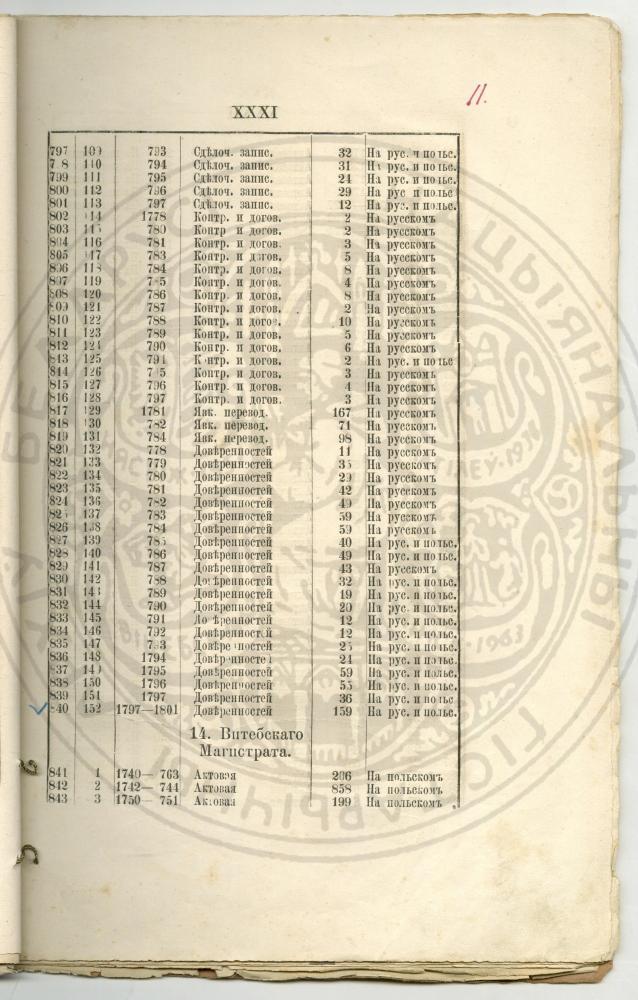 11.
XXXI
797 109 793 Сдѣлоч. запис. 32 На рус. и польс.
7 8 110 794 Сдѣлоч. запис. 31 На рус. и польс.
799 111 795 Сдѣлоч. запис. 24 На рус. и польс.
800 112 796 Сдѣлоч. запис. 29 На рус и польс
801 113 797 Сдѣлоч. запис. 12 На рус. и польс.
802 114 1778 Контр. и догов. 2 На русскомъ
803 115 780 Контр. и догов. 2 На русскомъ
804 116 781 Контр. и догов. 3 На русскомъ
805 117 783 Контр. и догов. 5 На русскомъ
806 118 784 Контр. и догов. 8 На русскомъ
807 119 785 Контр. и догов. 4 На русскомъ
808 120 786 Контр. и догов. 8 На русскомъ
809 121 787 Контр. и догов. 2 На русскомъ
810 122 788 Контр. и догов. 10 На русскомъ
811 123 789 Контр. и догов. 5 На русскомъ
812 124 790 Контр. и догов. 6 На русском.
813 125 791 Контр. и догов. 2 На рус. и польс
814 126 795 Контр. и догов. 3 На русскомъ
815 127 796 Контр. и догов. 4 На русскомъ
816 128 797 Контр. и догов. 3 На русскомъ
817 129 1781 Явк. перевод. 167 На русскомъ
818 130 782 Явк. перевод. 71 На русскомъ
819 131 784 Явк. перевод. 98 На русскомъ
820 132 778 Довѣренностей 11 На русскомъ
821 133 779 Довѣренностей На русскомъ
822 134 780 Довѣренностей 29 На русскомъ
823 135 781 Довѣренностей 42 На русскомъ
824 136 782 Довѣренностей 49 На русскомъ
825 137 783 Довѣренностей 59 На русскомъ
826 138 784 Довѣренностей 59 На русскомъ
827 139 785 Довѣренностей 40 На рус. и польс.
828 140 786 Довѣренностей 49 На рус. и польс.
829 141 787 Довѣренностей 43 На русскомъ
830 142 788 Довѣренностей 32 На рус. и польс.
831 143 789 Довѣренностей 19 На рус. и польс.
832 144 790 Довѣренностей 20 На рус. и польс.
833 145 791 Довѣренностей 12 На рус. и польс.
834 146 792 Довѣренностей 12 На рус. и польс.
835 147 793 Довѣренностей 25 На рус. и польс.
836 148 1794 Довѣренностей 21 На рус. и польс.
837 149 1795 Довѣренностей 59 На рус. и польс.
838 150 1796 Довѣренностей 55 На рус. и польс.
839 151 1797 Довѣренностей 36 На рус. и польс
840 152 1797—1801 Довѣренностей 159 На рус. и польс.
14. Витебскаго
Магистрата.
841 1 1740— 763 Актовая 206 На польскомъ
842 2 1742— 744 Актовая 858 На польскомъ
843 3 1750— 751 Актовая 199 На польскомъ